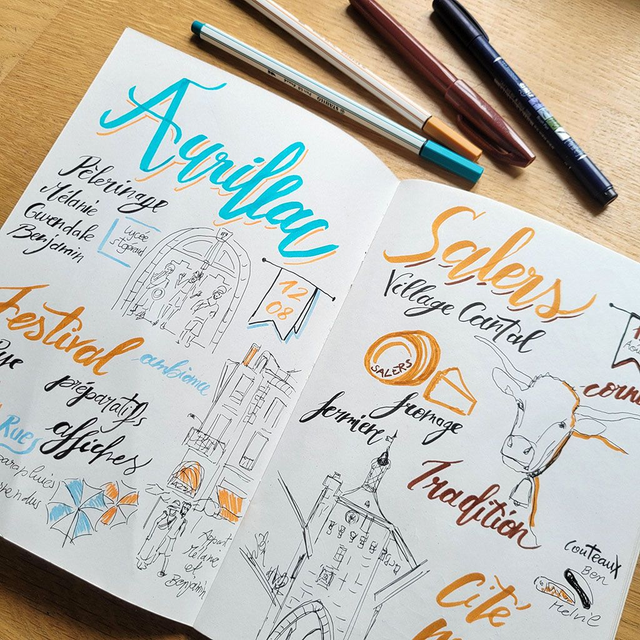 Aurillac
Pèlerinage
Mélanie
Gwendale
Benjamin
Lycée
12
08
Festival
ambiance
préparatifs
affiches
Rues
parapluies
Mélanie
et
Benjamin
Salers
Village Cantal
SALERS
fromage
fermier
Tradition
couteaux
Cité